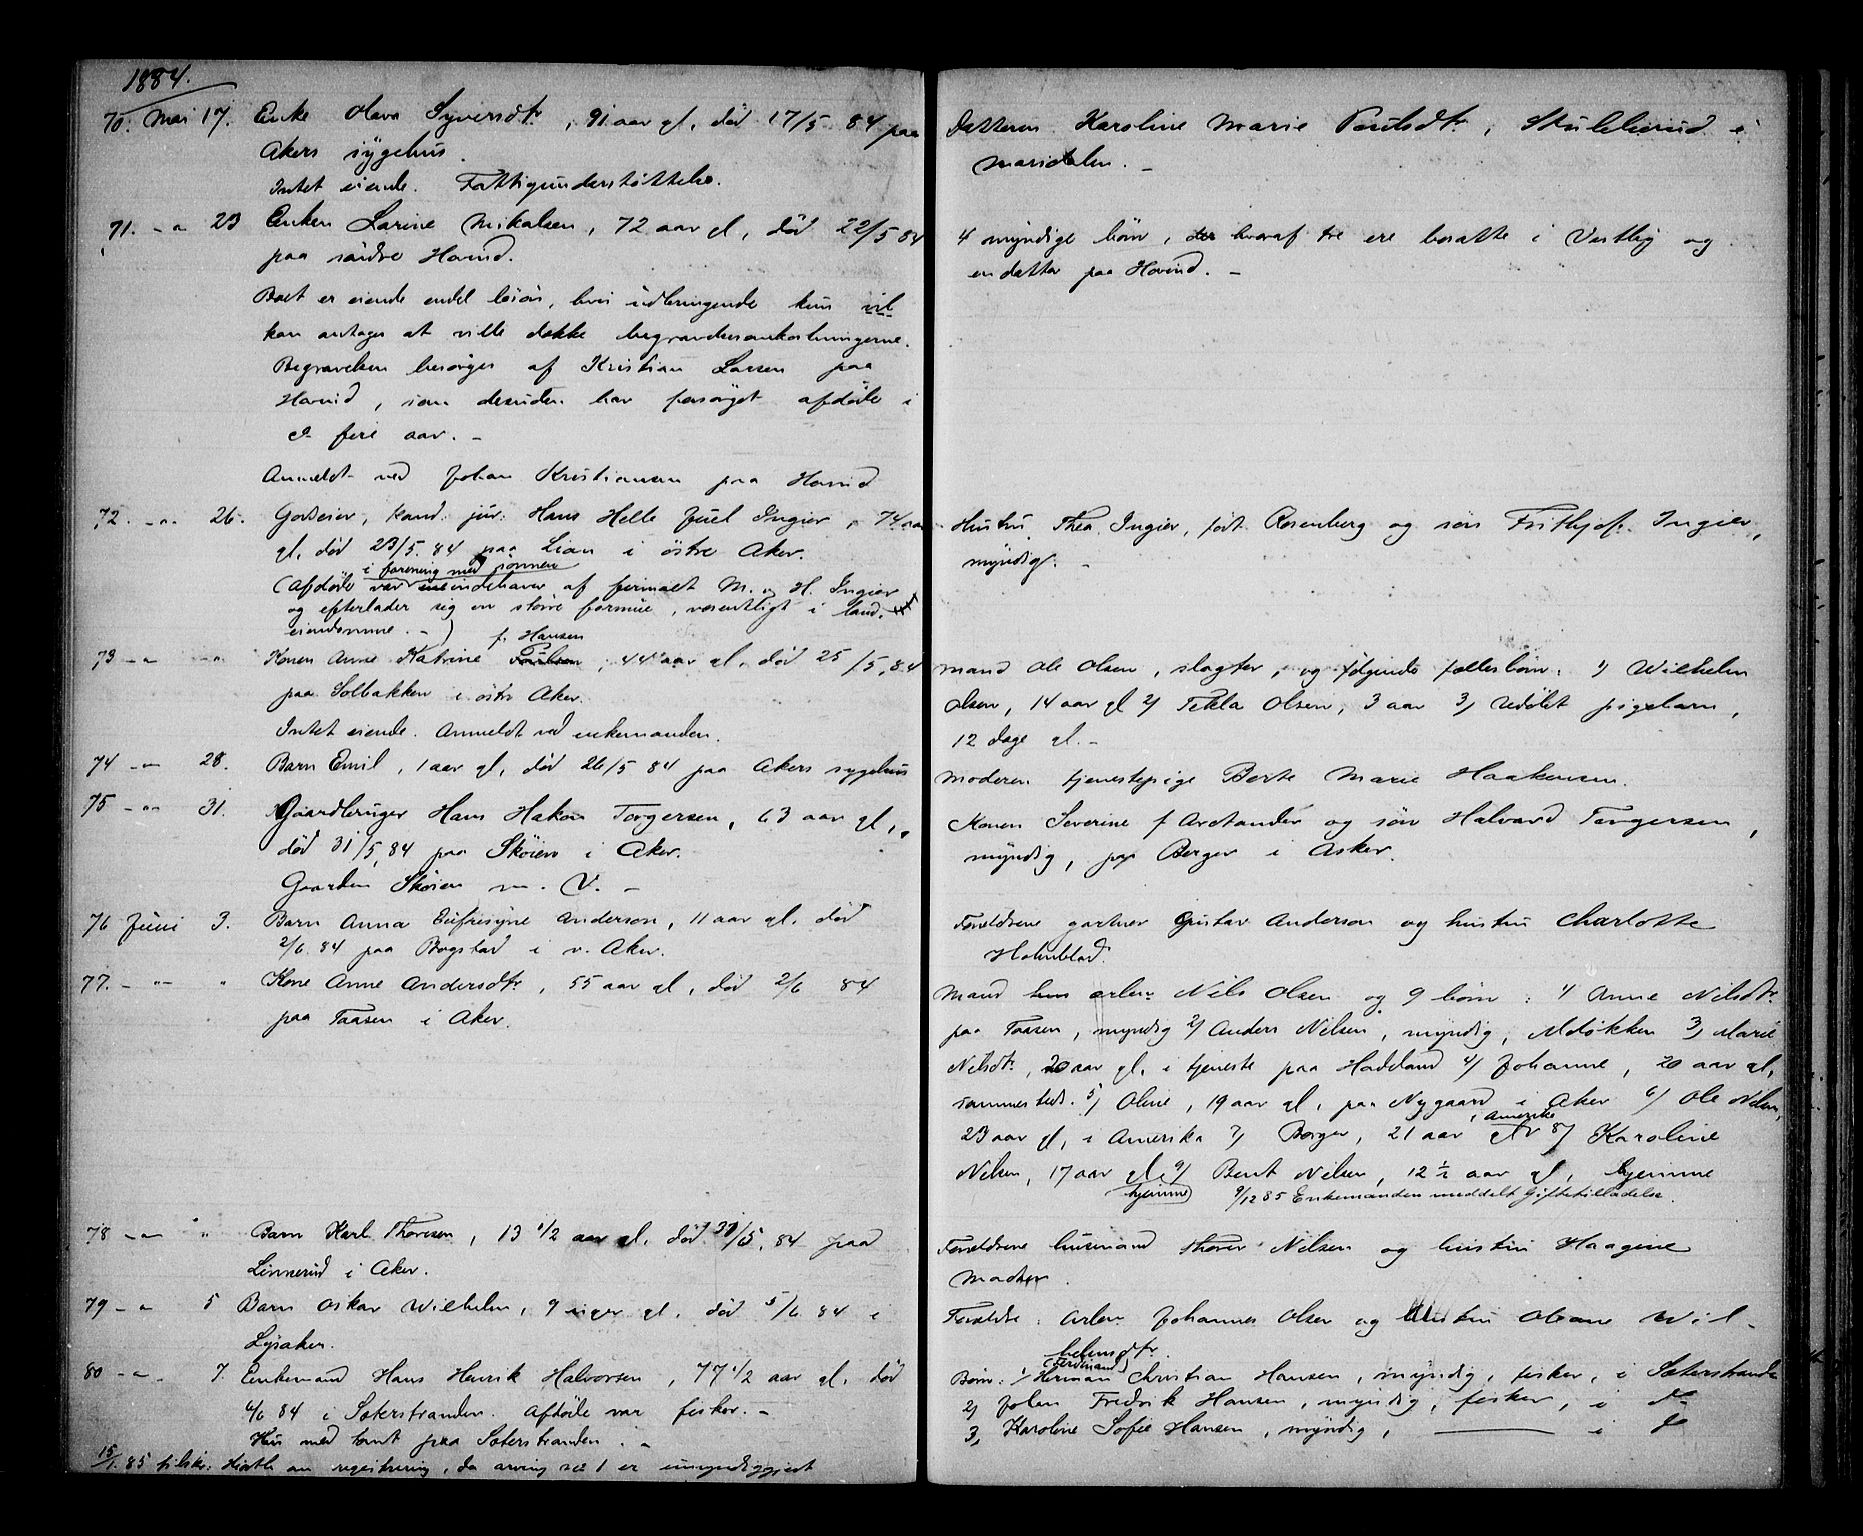 1884.
70. Mai 17. Enke Olava Syversdtr, 91 aar gl, död 17/5 84 paa
Akers sygehus.
Intet eiende. Fattigunderstøttelse.
71. -"- 23 Enken Larine Mikalsen, 72 aar gl, död 22/5 84
paa söndre Hovind.
Boet er eiende endel lösöre, hvis udbringende kun vil
kan antages at ville dække begravelsesomkostningerne.
Begravelsen besörges af Kristian Larsen paa
Hovind, som desuden har forsörget afdöde i
fire aar. -
Anmeldt ved Johan Kristiansen paa Hovind
72. -"- 26. Godseier, kand. jur. Hans Helle Juel Ingier, 74 aar
gl, död 23/5. 84 paa Lian i östre Aker.
i forening med sønnen
(Afdöde var indehaver af firmaet M. og H. Ingier
og efterlader sig en större formue, væsentligt i land-
eiendomme. -)
f. Hansen
73 -"- -"- Konen Anne Katrine Paulsen, 44 aar gl, död 25/5, 84
paa Solbakken i östre Aker.
Intet eiende. Anmeldt ved enkemanden.
74 -"- 28. Barn Emil, 1 aar gl, död 26/5 84 paa Akers sygehus
75 -"- 31. Gaardbruger Hans Hakon Torgersen, 63 aar gl,
död 31/5, 84 paa Sköien i Aker.
Gaarden Sköien m. V. -
76 Juni 3. Barn Anna Eufrosyne Anderson, 11 aar gl. död
2/6. 84 paa Bogstad i v. Aker.
77. -"- " Kone Anne Andersdtr, 55 aar gl, död 2/6 84
paa Taasen i Aker.
78 -"- " Barn Karl Thoresen, 13 1/2 aar gl. död 31/5, 84 paa
Linnerud i Aker.
79 -"- 5 Barn Oskar Wilhelm, 9 uger gl. död 5/6 84 i
Lysaker.
80 -"- 7. Enkemand Hans Henrik Halvorsen, 77 1/2 aar gl. död
4/6 84 i Sæterstranden. Afdöde var fisker. -
Hus med tomt paa Sæterstranden. -
15/1. 85 tilskr. Hioth om registrering, da arving No 1 er umyndiggjort
Datteren Karoline Marie Paulsdtr, Skullerud i
Maridalen. -
4 myndige børn, der hvoraf tre ere bosatte i Vestby og
en datter paa Hovind. -
Hustru Thea Ingier, födt Rosenberg og sön Frithjof Ingier,
myndig. -
Mand Ole Olsen, slagter, og fölgende fællesbörn: 1) Wilhelm
Olsen, 14 aar gl 2) Tekla Olsen, 3 aar 3) Udöbt pigebarn,
12 dage gl. -
Moderen tjenestepige Berte Marie Haakensen.
Konen Severine f Arctander og sön Halvard Torgersen,
myndig, paa Berger i Asker.
Forældrene gartner Gustav Anderson og hustru Charlotte
Holmblad.
Mand hus arbm Nils Olsen og 9 börn: 1) Anne Nilsdtr
paa Taasen, myndig 2) Anders Nilsen, myndig, 3) Marie
Nilsdtr, 20 aar gl. i tjeneste paa Hadeland 4) Johanne, 20 aar gl,
sammesteds. 5) Oline, 19 aar gl, paa Nygaard i Aker 6) Ole Nilsen,
23 aar gl, i Amerika 7) Borger, 21 aar i Amerika 8) Karoline
Nilsen, 17 aar gl, hjemme 9) Bent Nilsen, 12 1/2 aar gl, hjemme
9/12 85 Enkemanden meddelt Giftetilladelse.
Forældrene husmand Thorer Nilsen og hustru Haagine
Madsen.
Forældre: Arbm Johannes Olsen og hustru Oleane Wil-
helmsdtr.
(Ferdinand)
Börn: 1) Herman Christian Hansen, myndig, fisker, i Sæterstranden
2) Johan Fredrik Hansen, myndig, fisker, i do
3) Karoline Sofie Hansen, myndig, —— i do